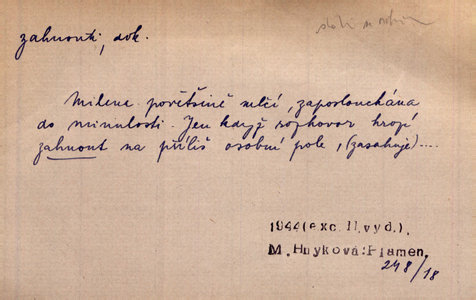 zahnouti, dok.
Milena povětšině mlčí, zaposlouchána
do minulosti. Jen když rozhovor hrozí
zahnout na příliš osobní pole, (zasahuje)....
1944(exc. II.vyd.).
M. Hnyková:Plamen.
248/18